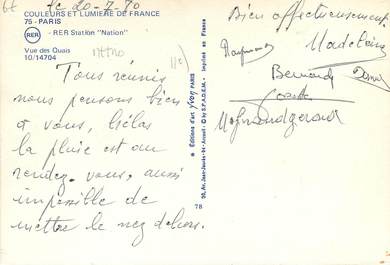 le 20-7-80
COULEURS ET LUMIÈRE DE FRANCE
75 - PARIS
RER - RER Station "Nation"
Vue des Quais
10/14704
METRO
Tous réunis
nous pensons bien
à vous, hélas
la pluie est au
rendez-vous, aussi
impossible de
mettre le nez dehors.
Editions d'art YVON PARIS
© by S.P.A.D.E.M. - Imprimé en France
78
Bien affectueusement
Raymond
Madeleine
Bernard
Josette